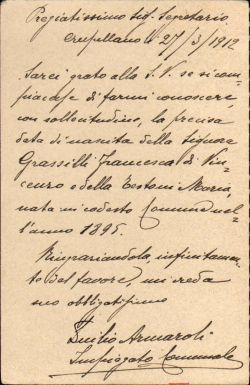 Pregiatissimo Sig. Segretario
Crespellano 27/3/1912
Sarei grato alla S. V. se si com-
piacesse di farmi conoscere,
con sollecitudine, la precisa
data di nascita della Signora
Grassilli Francesca di Vin-
cenzo e della Testoni Maria,
nata in codesto Comune nel-
l'anno 1895.
Ringraziandola, infinitamen-
te del favore, mi creda
suo obbligatissimo
Emilio Armaroli
Impiegato Comunale